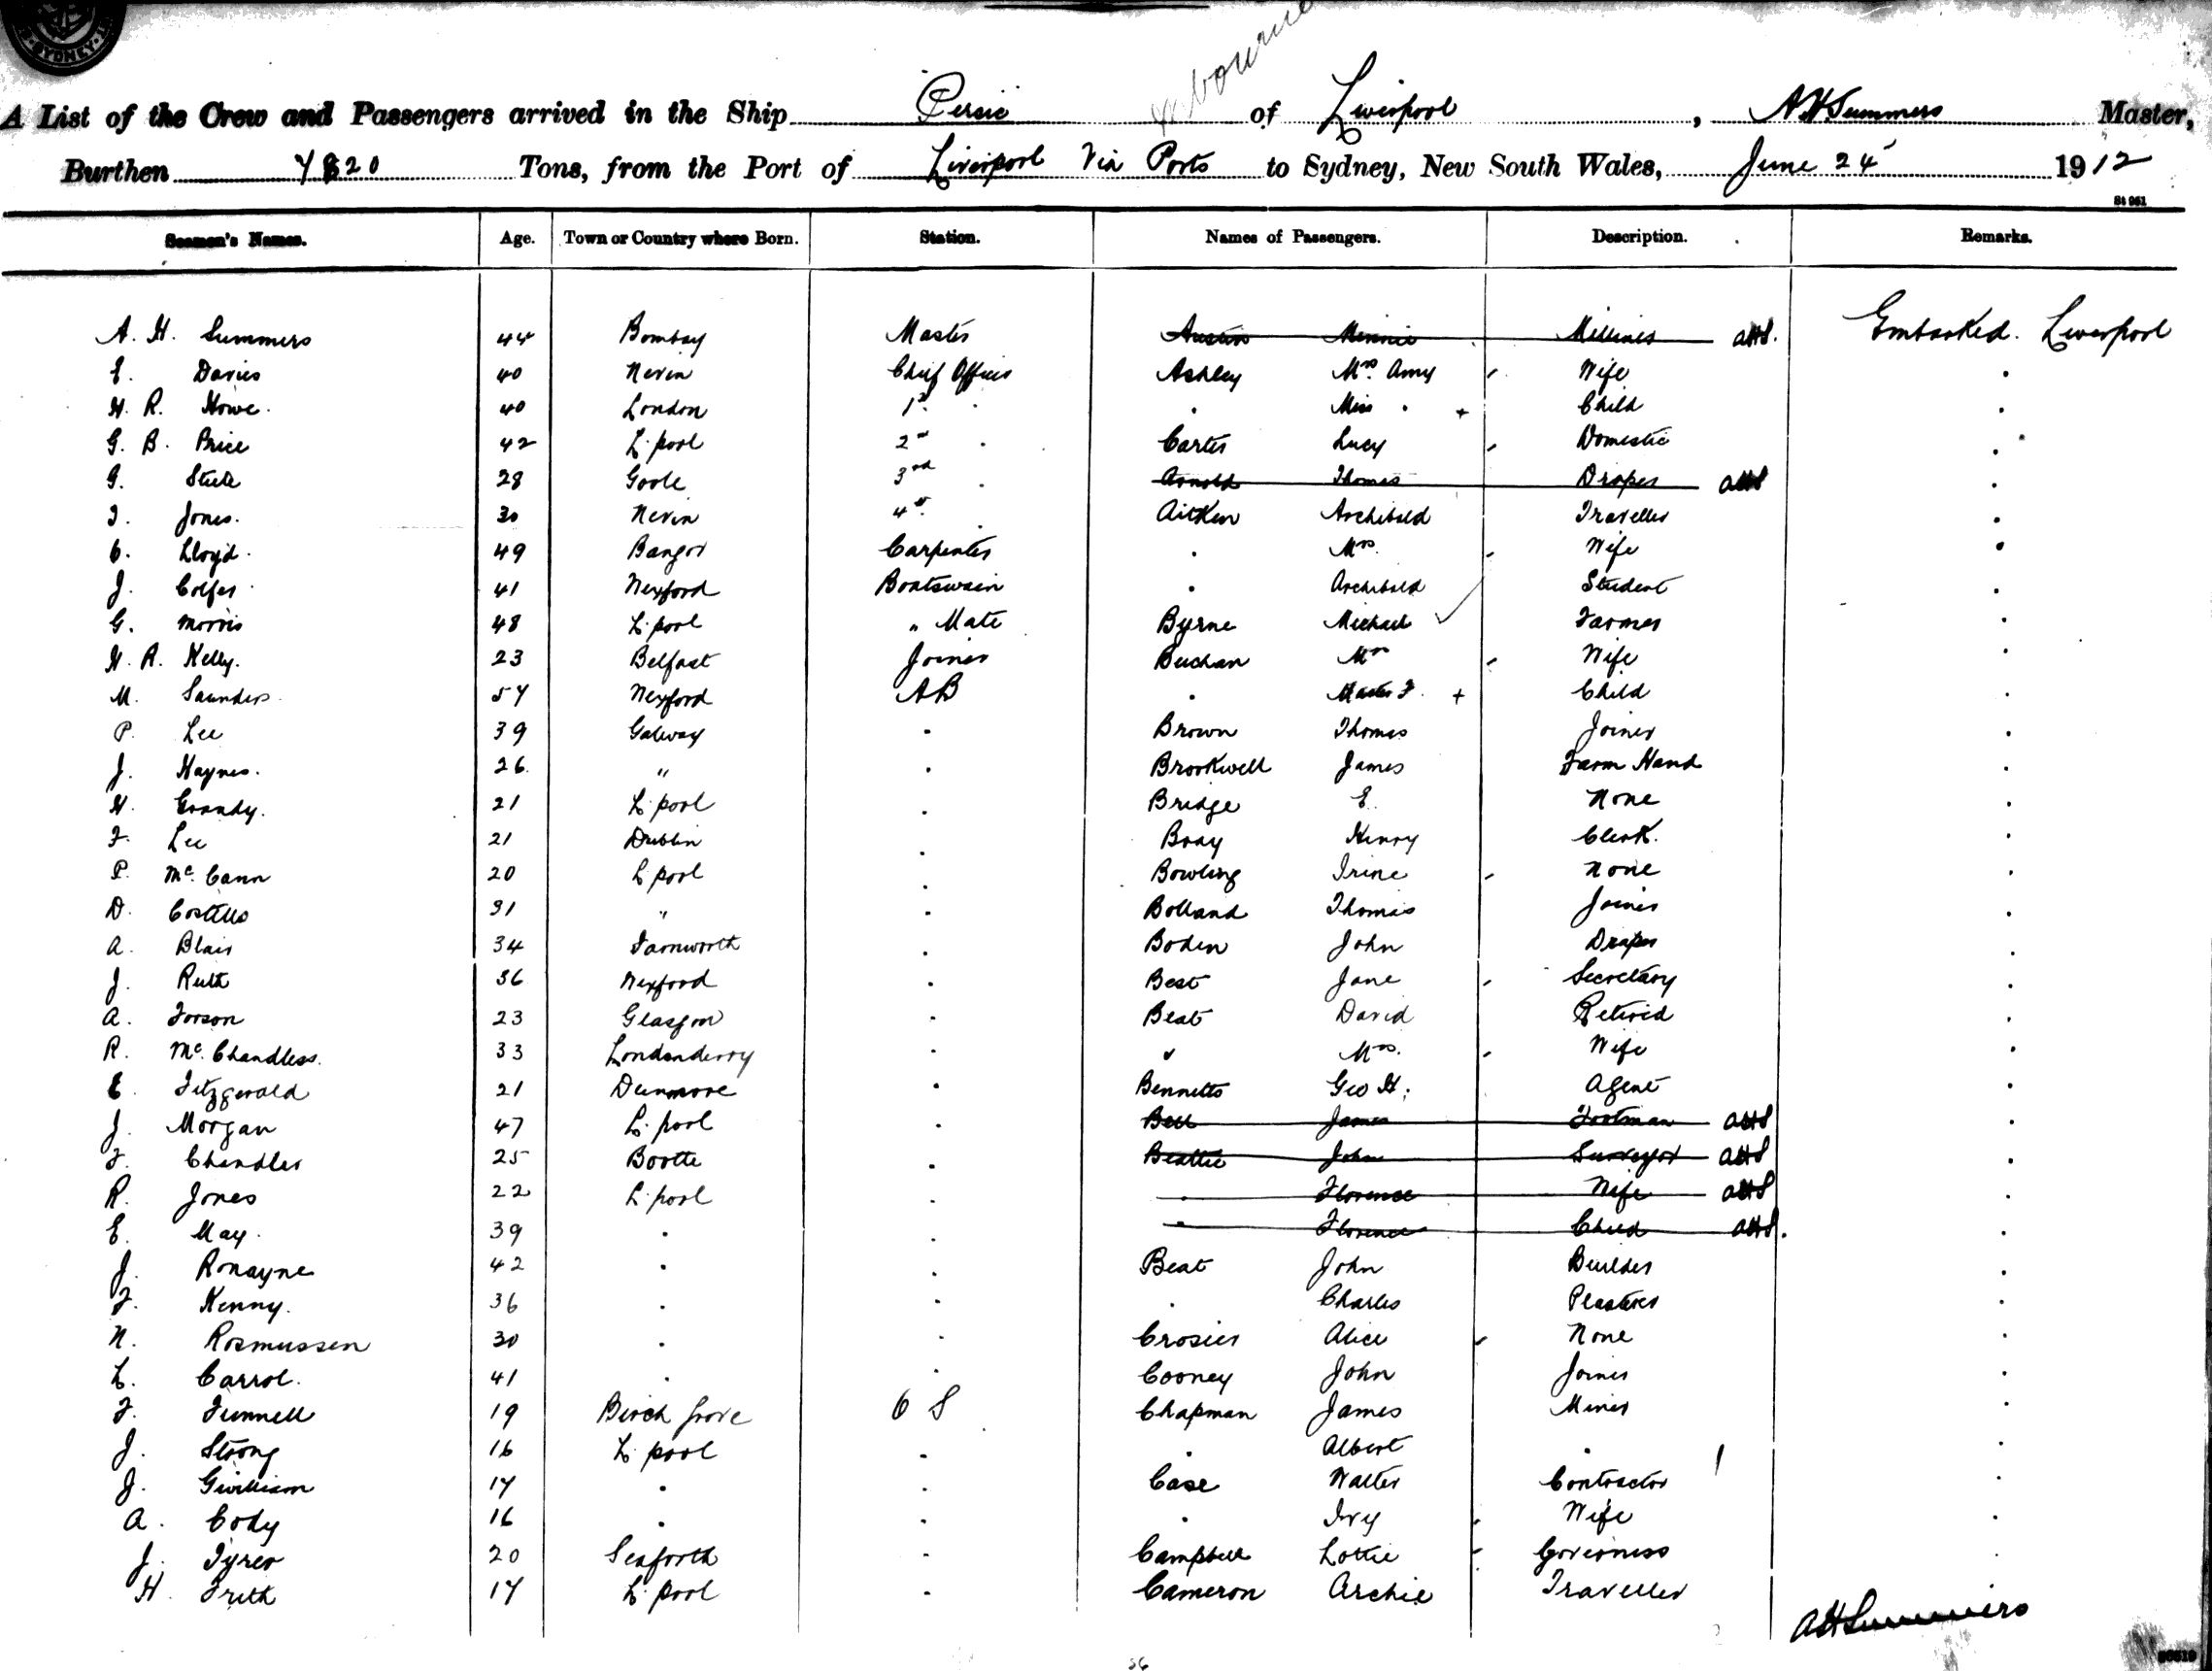 SYDNEY
A List of the Crew and Passengers arrived in the Ship Persic of Liverpool, AHSummers Master,
Burthen 7820 Tons, from the Port of Liverpool Via Ports to Sydney, New South Wales, June 24 1912
St 961
Seamen's Names. Age. Town or Country where Born. Station. Names of Passengers. Description. Remarks.
A. H. Summers 44 Bombay Master Austin Minnie Milliner AHS. Embarked. Liverpool
E. Davies 40 Nevin Chief Officer Ashley Mrs Amy Wife
H. R. Howe. 40 London 1st Miss + Child
G. B. Price 42 L.pool 2nd Carter Lucy Domestic
G. 28 Goole 3rd Arnold Thomas Draper AHS
J. Jones. 30 Nevin 4th Aitken Archibald Traveller
O. Lloyd. 49 Bangor Carpenter Mrs. Wife
J. Colfer 41 Wexford Boatswain Archibald Student
G. Morris 48 L.pool " Mate Byrne Michael Farmer
H. R. Kelly. 23 Belfast Joiner Buchan Mrs Wife
M. Saunders 57 Wexford AB Master F. + Child
P. Lee 39 Galway Brown Thomas Joiner
J. Haynes. 26 " Brookwell James Farm Hand
H. Grandy. 21 L.pool Bridge E. None
F. Lee 21 Dublin Bray Henry Clerk.
P. McCann 20 L.pool Bowling Irine None
D. Costello 31 " Bolland Thomas Joiner
A. Blair 34 Farnworth Boden John Draper
J. Ruth 36 Wexford Best Jane Secretary
A. Forson 23 Glasgow Beat David Retired
R. Mc.Chandless. 33 Londonderry " Mrs. Wife
E. Fitzgerald 21 Dunmore Bennetts Geo H. Agent
J. Morgan 47 L.pool Bell James Footman AHS
F. Chandler 25 Bootle Beattie John Surveyor AHS
R. Jones 22 L.pool Florence Wife AHS
E. May. 39 Florence Child AHS.
J. Ronayne 42 Beat John Builder
F. Kenny. 36 Charles Plasterer
N. Rasmussen 30 Crosier Alice None
L. Carrol. 41 Cooney John Joiner
F. Funnell 19 Birch Grove O S Chapman James Miner
J. Strong 16 L.pool Albert
J. Gwilliam 17 Case Walter Contractor
A. Cody 16 Ivy Wife
J. Tyrer 20 Seaforth Campbell Lottie Governess
H. Frith 17 L.pool Cameron Archie Traveller
AHSummers